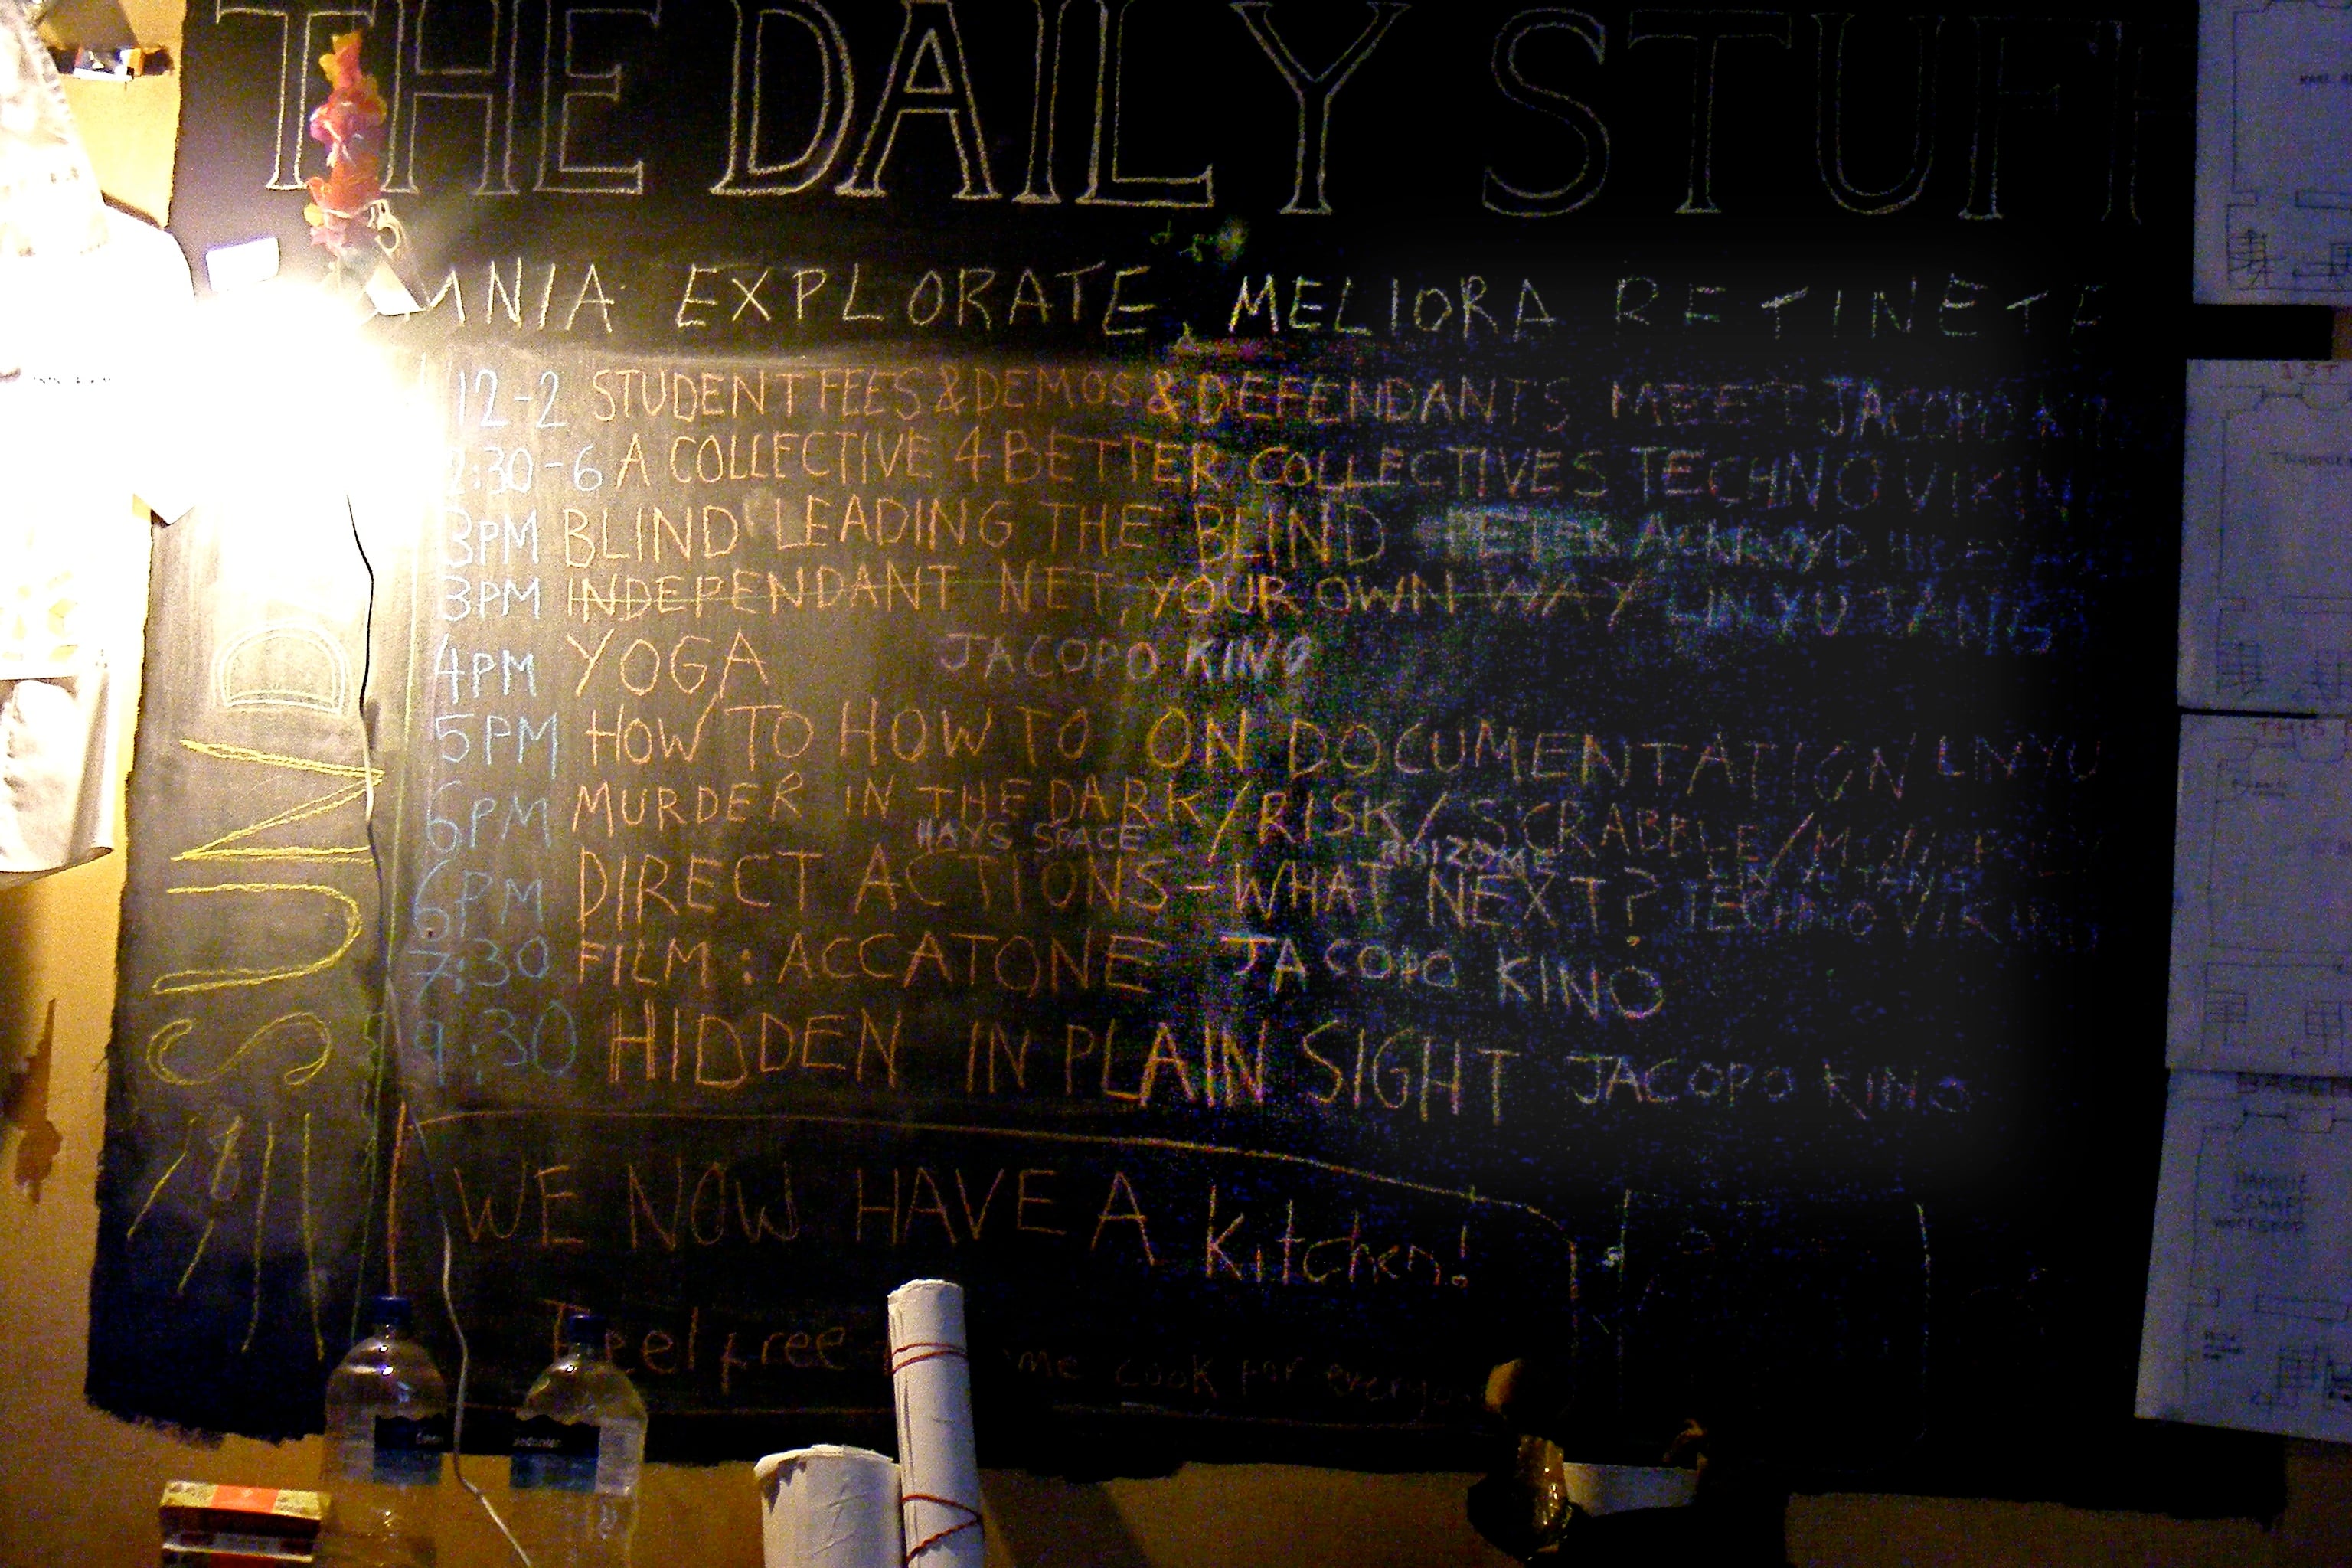 THE DAILY STUFF
MNIA EXPLORATE MELIORA RETINETE
SUND
12-2 STUDENT FEES & DEMOS & DEFENDANTS MEET JACOPO
2:30-6 A COLLECTIVE 4 BETTER COLLECTIVES TECHNO VIKIN
3PM BLIND LEADING THE BLIND PETER
3PM INDEPENDANT NET, YOUR OWN WAY LIN YU TANG
4PM YOGA JACOPO KINO
5PM HOW TO HOW TO ON DOCUMENTATION LIN YU
6PM MURDER IN THE DARK/RISK/SCRABBLE/
HAYS SPACE RHIZOME LIN YU TANG
6PM DIRECT ACTIONS - WHAT NEXT? TECHNO VIKING
7:30 FILM: ACCATONE JACOPO KINO
9:30 HIDDEN IN PLAIN SIGHT JACOPO KINO
WE NOW HAVE A Kitchen!
Feel free me cook for everyo
1ST
HANNIE
SCHAFT
WORKSHOP